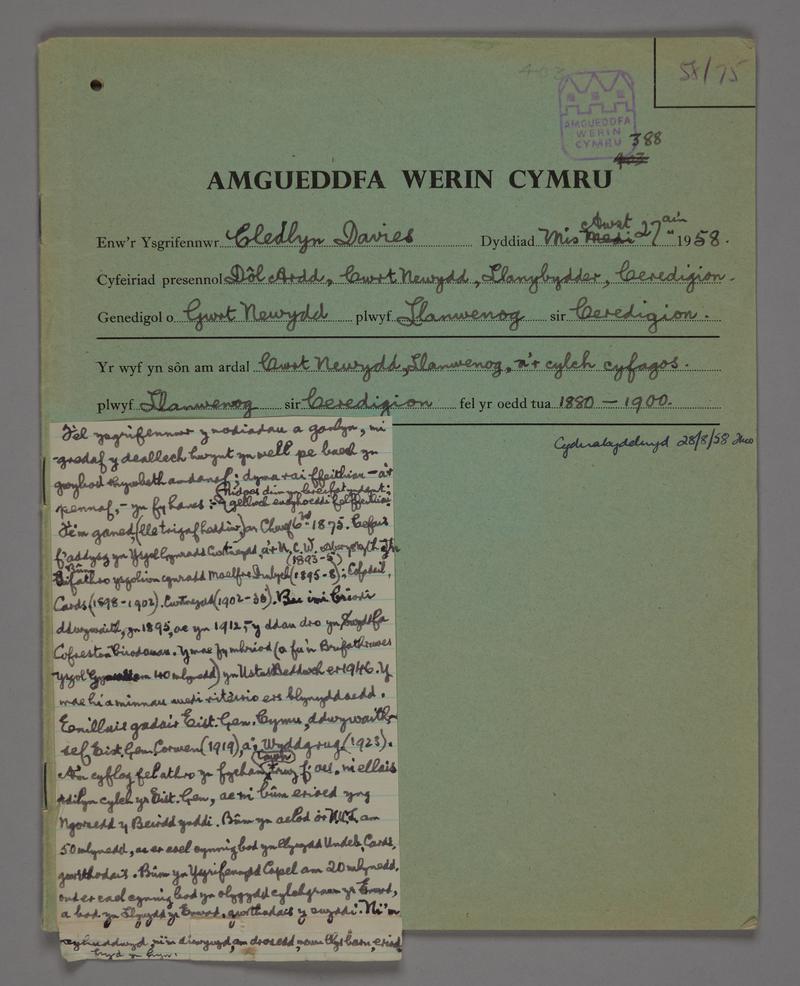 403
58/75
AMGUEDDFA
WERIN
CYMRU
388
403
AMGUEDDFA WERIN CYMRU
Enw'r Ysgrifennwr Cledlyn Davies Dyddiad Mis Medi Awst 27ain 1958.
Cyfeiriad presennol Dôl Ardd, Cwrt Newydd, Llanybydder, Ceredigion.
Genedigol o Gwrt Newydd plwyf Llanwenog sir Ceredigion.
Yr wyf yn sôn am ardal Cwrt Newydd, Llanwenog, a'r cylch cyfagos.
plwyf Llanwenog sir Ceredigion fel yr oedd tua 1880 – 1900.
Cydnabyddwyd 28/8/58
Fel ysgrifennwr y nodiadau a ganlyn, mi
gredaf y deallech hwynt yn well pe baech yn
gwybod rhywbeth amdanaf; dyma rai ffeithiau – a'r
pennaf, – yn fy hanes:
Fe'm ganed, (lle trigaf heddiw), ar Chwef 6ed 1875. Cefais
f'addysg yn Ysgol Gynradd Cwrtnewydd, a'r U.C.W. Aberystwyth
(1893-5)
Bûm
Brifathro ysgolion cynradd (1895-8);
Cards (1898-1902). Cwrtnewydd (1902-36). Bu imi briodi
ddwywaith, yn 1895, ac yn 1912, – y ddau dro yn Swyddfa
Cofrestru Y mae fy mhriod (a fu'n Brifathrawes
Ysgol am 40 mlynedd) yn Ustus Heddwch er 1946. Y
mae hi a minnau wedi riteirio ers blynyddoedd.
Enillais gadair Eist. Gen. Cymru, ddwywaith
sef Eist. Gen. Corwen (1919), a'r Wyddgrug (1923).
A'm cyflog fel athro yn fychan, trwy f'oes, ni ellais
ddilyn cylch yr Eist. Gen, ac ni bûm erioed yng
Ngorsedd y Beirdd ynddi. Bûm yn aelod o'r N.U.T. am
50 mlynedd, ac er cael cynnig bod yn Llywydd Undeb Cards,
gwrthodais. Bûm yn Ysgrifennydd Capel am 20 mlynedd,
ond er cael cynnig bod yn olygydd cylchgrawn yr Enwad,
a bod yn Llywydd yr Enwad, gwrthodais y swyddi. Ni'm
cyhuddwyd, ni'm dirwywyd, am drosedd, mewn llys barn, erioed
hyd yn hyn.